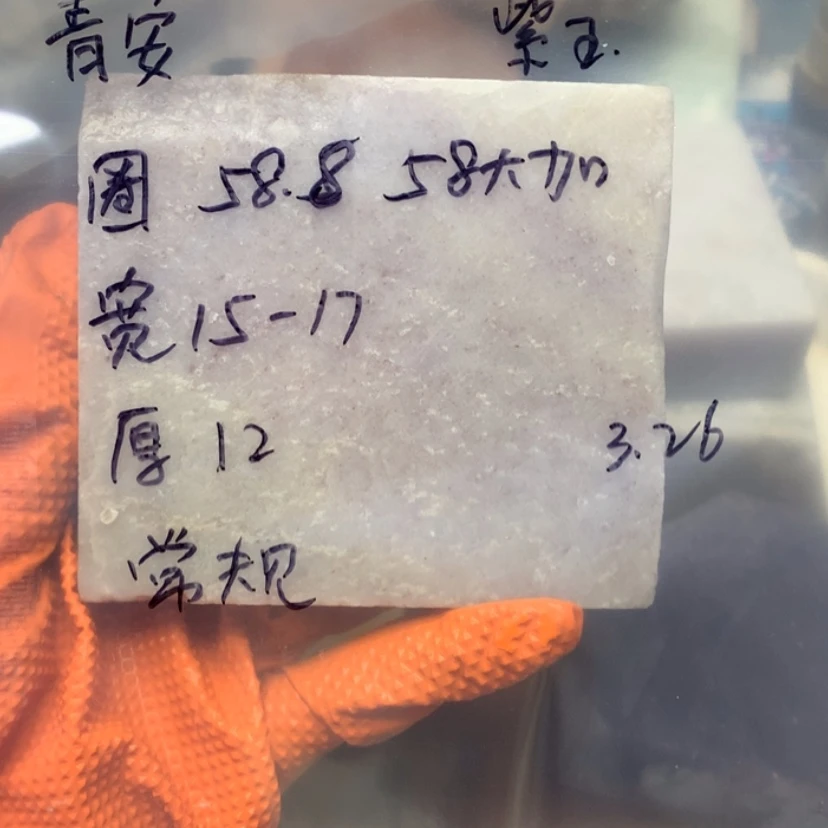 青安 紫玉.
圈 58.8 58大加
宽 15-17
厚 12 3.26
常规